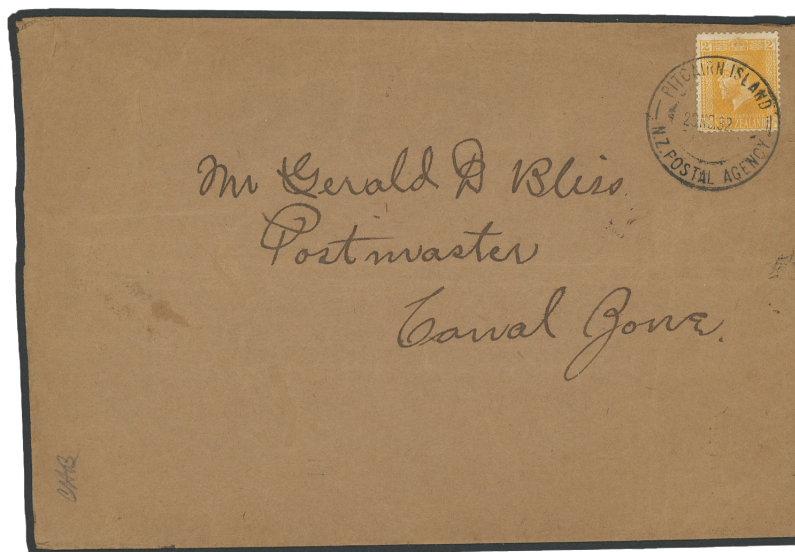 PITCAIRN ISLAND
N.Z. POSTAL AGENCY
Mr Gerald D Bliss
Postmaster
Canal Zone.